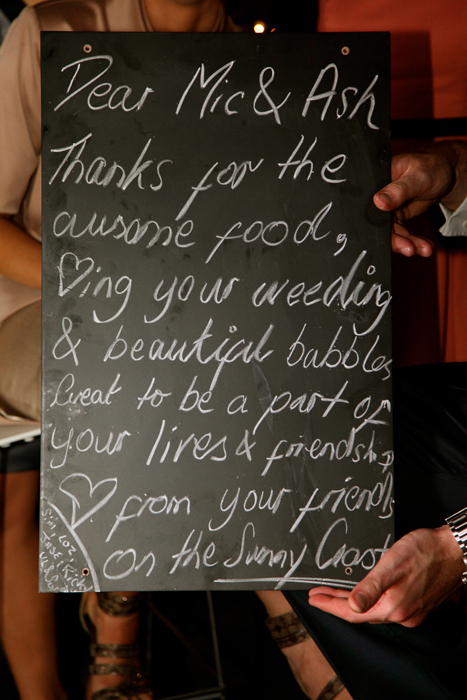 Dear Mic & Ash
Thanks for the
awsome food,
♡ing your weeding
& beautiful babbles
Great to be a part of
your lives & friendship
♡ from your friends
on the Sunny Coast